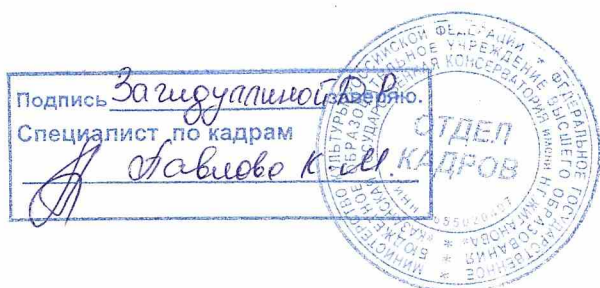 Подпись Загидуллиной Д. Р. заверяю.
Специалист по кадрам
Павлова К. М.
МИНИСТЕРСТВО КУЛЬТУРЫ РОССИЙСКОЙ ФЕДЕРАЦИИ * ФЕДЕРАЛЬНОЕ ГОСУДАРСТВЕННОЕ
БЮДЖЕТНОЕ ОБРАЗОВАТЕЛЬНОЕ УЧРЕЖДЕНИЕ ВЫСШЕГО ОБРАЗОВАНИЯ
КАЗАНСКАЯ ГОСУДАРСТВЕННАЯ КОНСЕРВАТОРИЯ ИМЕНИ Н.Г. ЖИГАНОВА
ОТДЕЛ
КАДРОВ